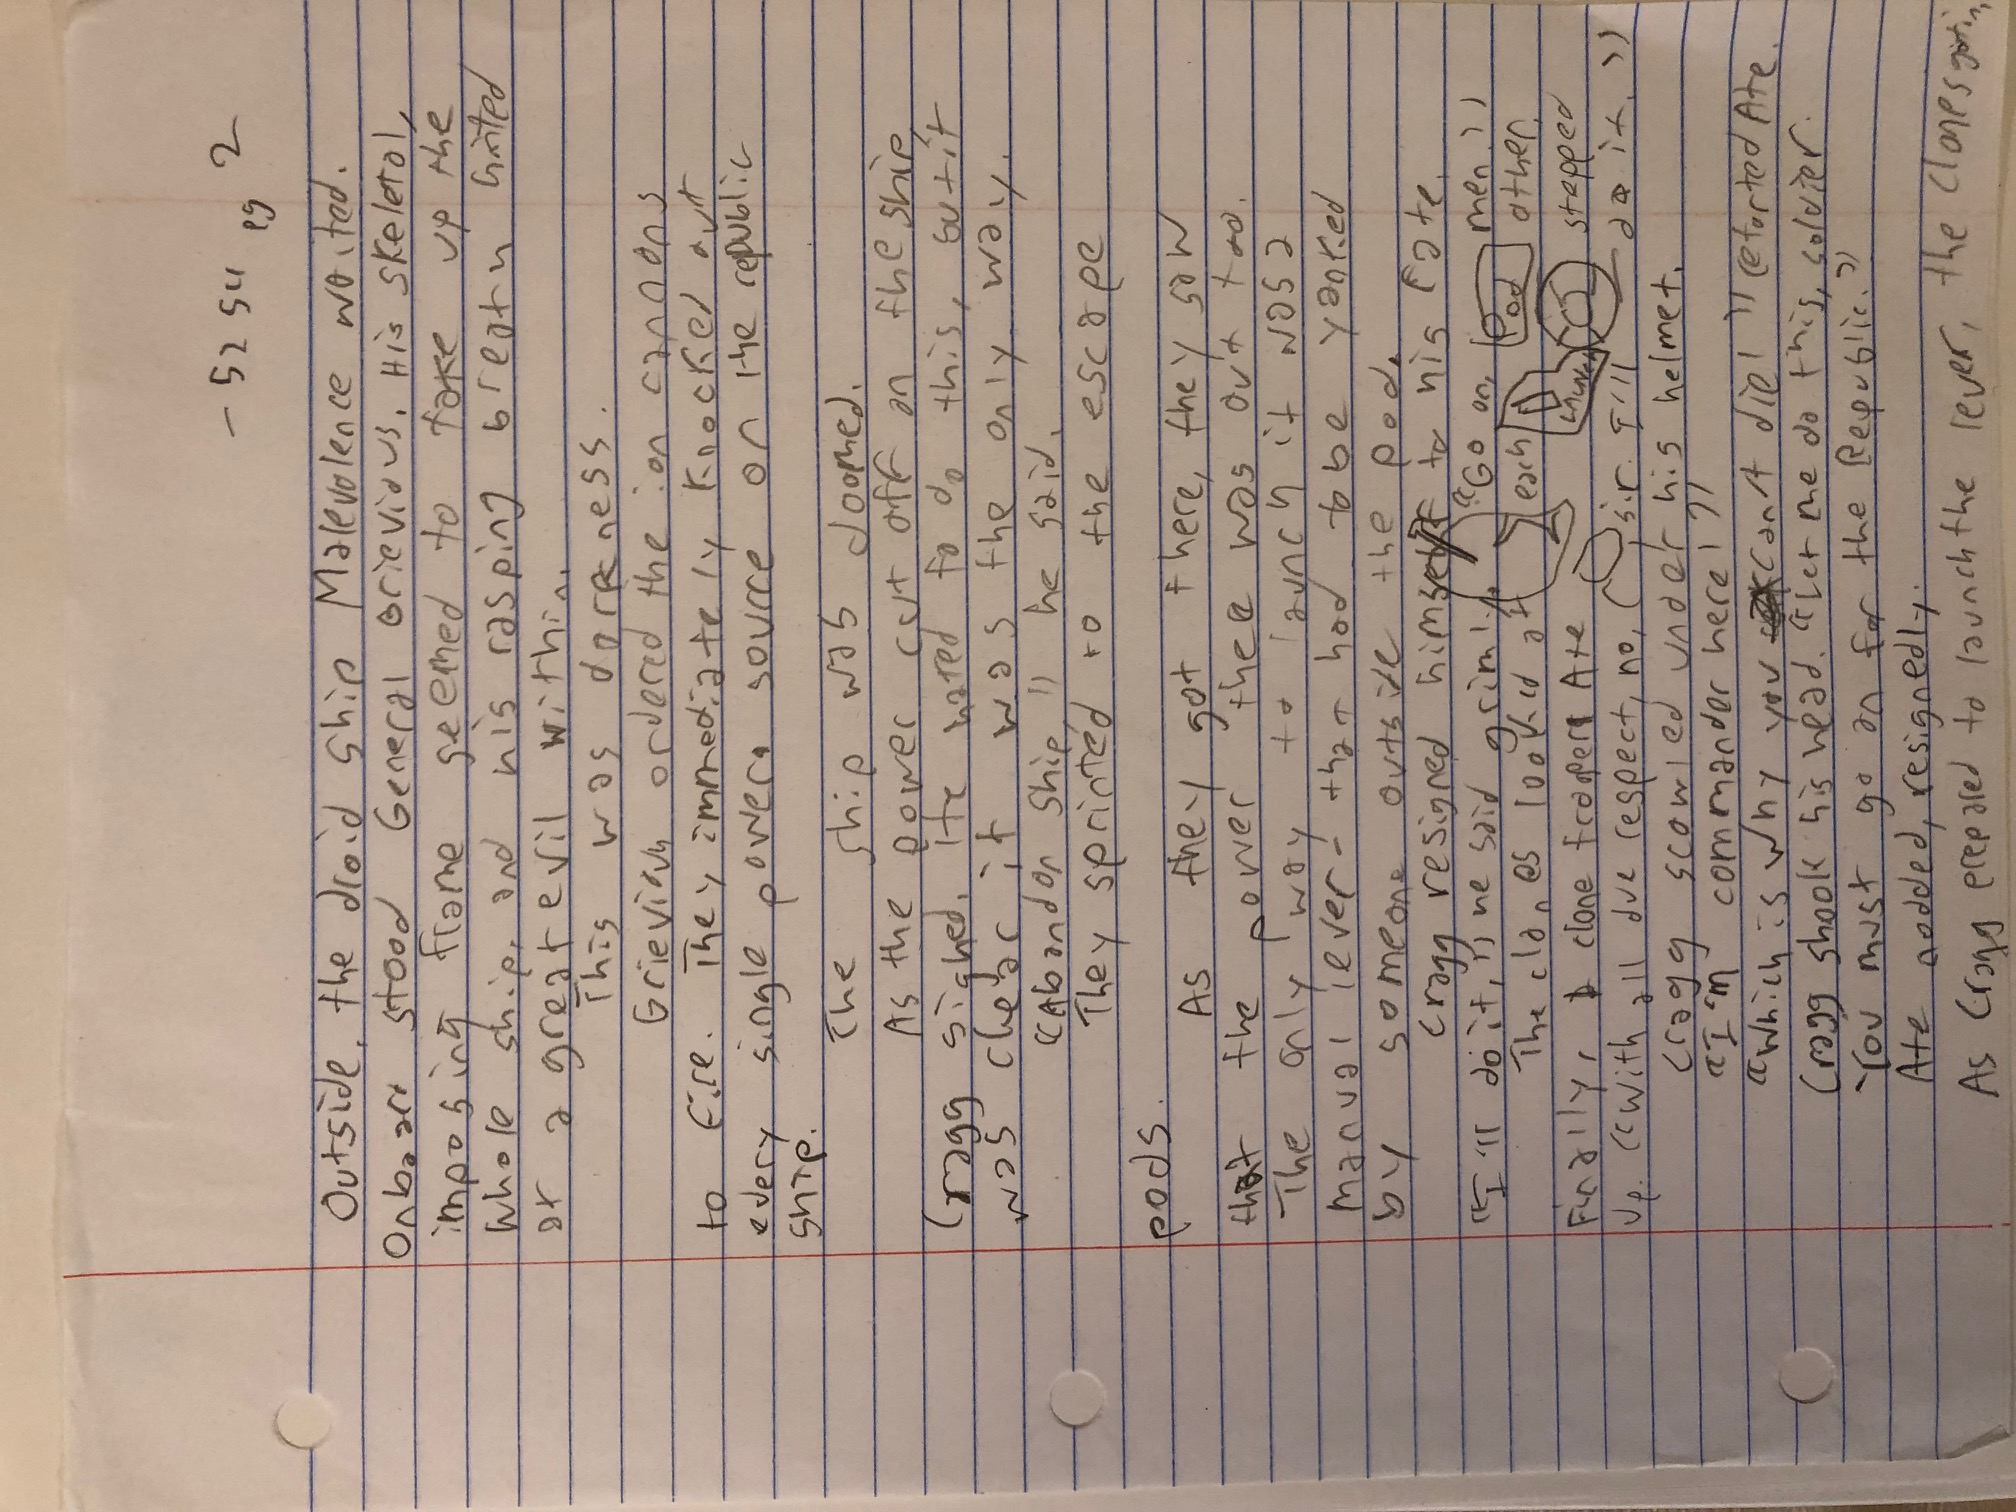 - 5254 pg 2
Outside, the droid ship Malevolence waited.
Onboard stood General Grievious. His skeletal,
imposing frame seemed to take up the
whole ship, and his rasping breath hinted
at a great evil within.
This was darkness.
Grievious ordered the ion cannons
to fire. They immediately knocked out
every single power source on the republic
ship.
The ship was doomed.
As the power cut off on the ship,
Cragg sighed. He hated to do this, but it
was clear it was the only way.
"Abandon ship," he said.
They sprinted to the escape
pods.
As they got there, they saw
that the power there was out too.
The only way to launch it was a
manual lever - that had to be yanked
by someone outside the pod.
Cragg resigned himself to his fate.
"I'll do it," he said grimly. "Go on, men."
The clones looked at each other.
Pod
Launch
Finally, clone trooper Ate stepped
up. "With all due respect, no, sir. I'll do it."
Cragg scowled under his helmet.
"I'm commander here!"
"Which is why you can't die!" retorted Ate.
Cragg shook his head. "Let me do this, soldier.
You must go on for the Republic."
Ate nodded, resignedly.
As Cragg prepared to launch the lever, the clones got in,